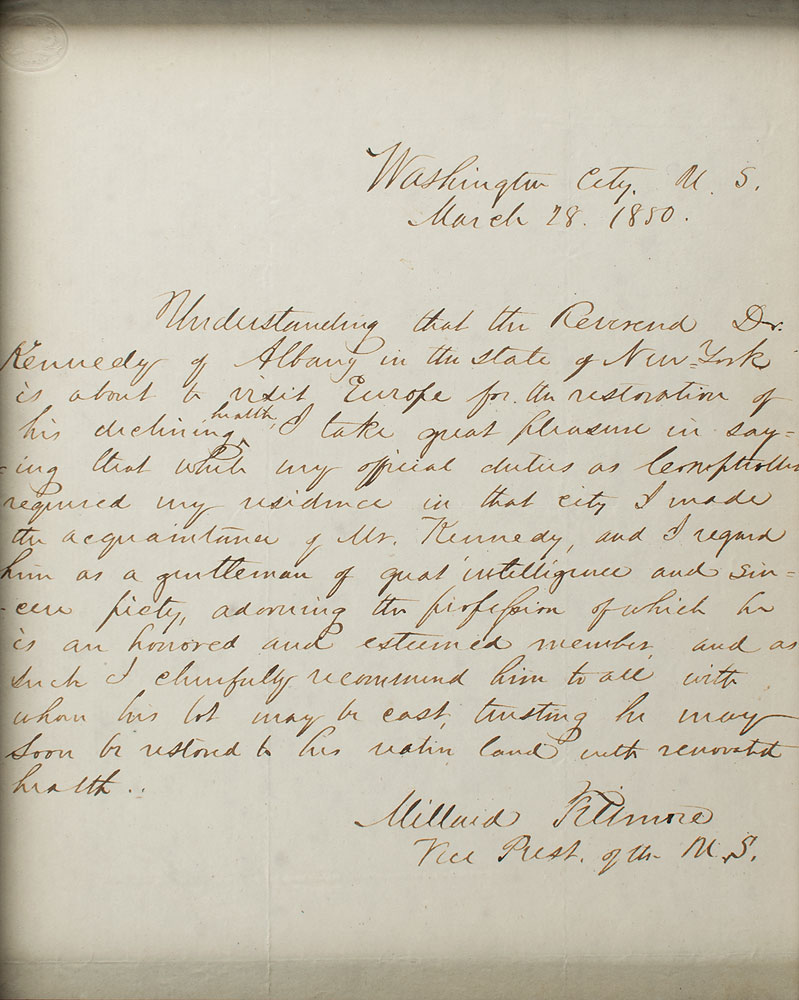 Washington City, U. S.
March 28. 1850.
Understanding that the Reverend Dr.
Kennedy of Albany in the state of New-York
is about to visit Europe for the restoration of
his declining health, I take great pleasure in say=
=ing that while my official duties as Comptroller
required my residence in that city I made
the acquaintance of Mr. Kennedy, and I regard
him as a gentleman of great intelligence and sin=
=cere piety, adorning the profession of which he
is an honored and esteemed member, and as
such I cheerfully recommend him to all with
whom his lot may be cast, trusting he may
soon be restored to his native land with renovated
health..
Millard Fillmore
Vice Prest. of the U. S.